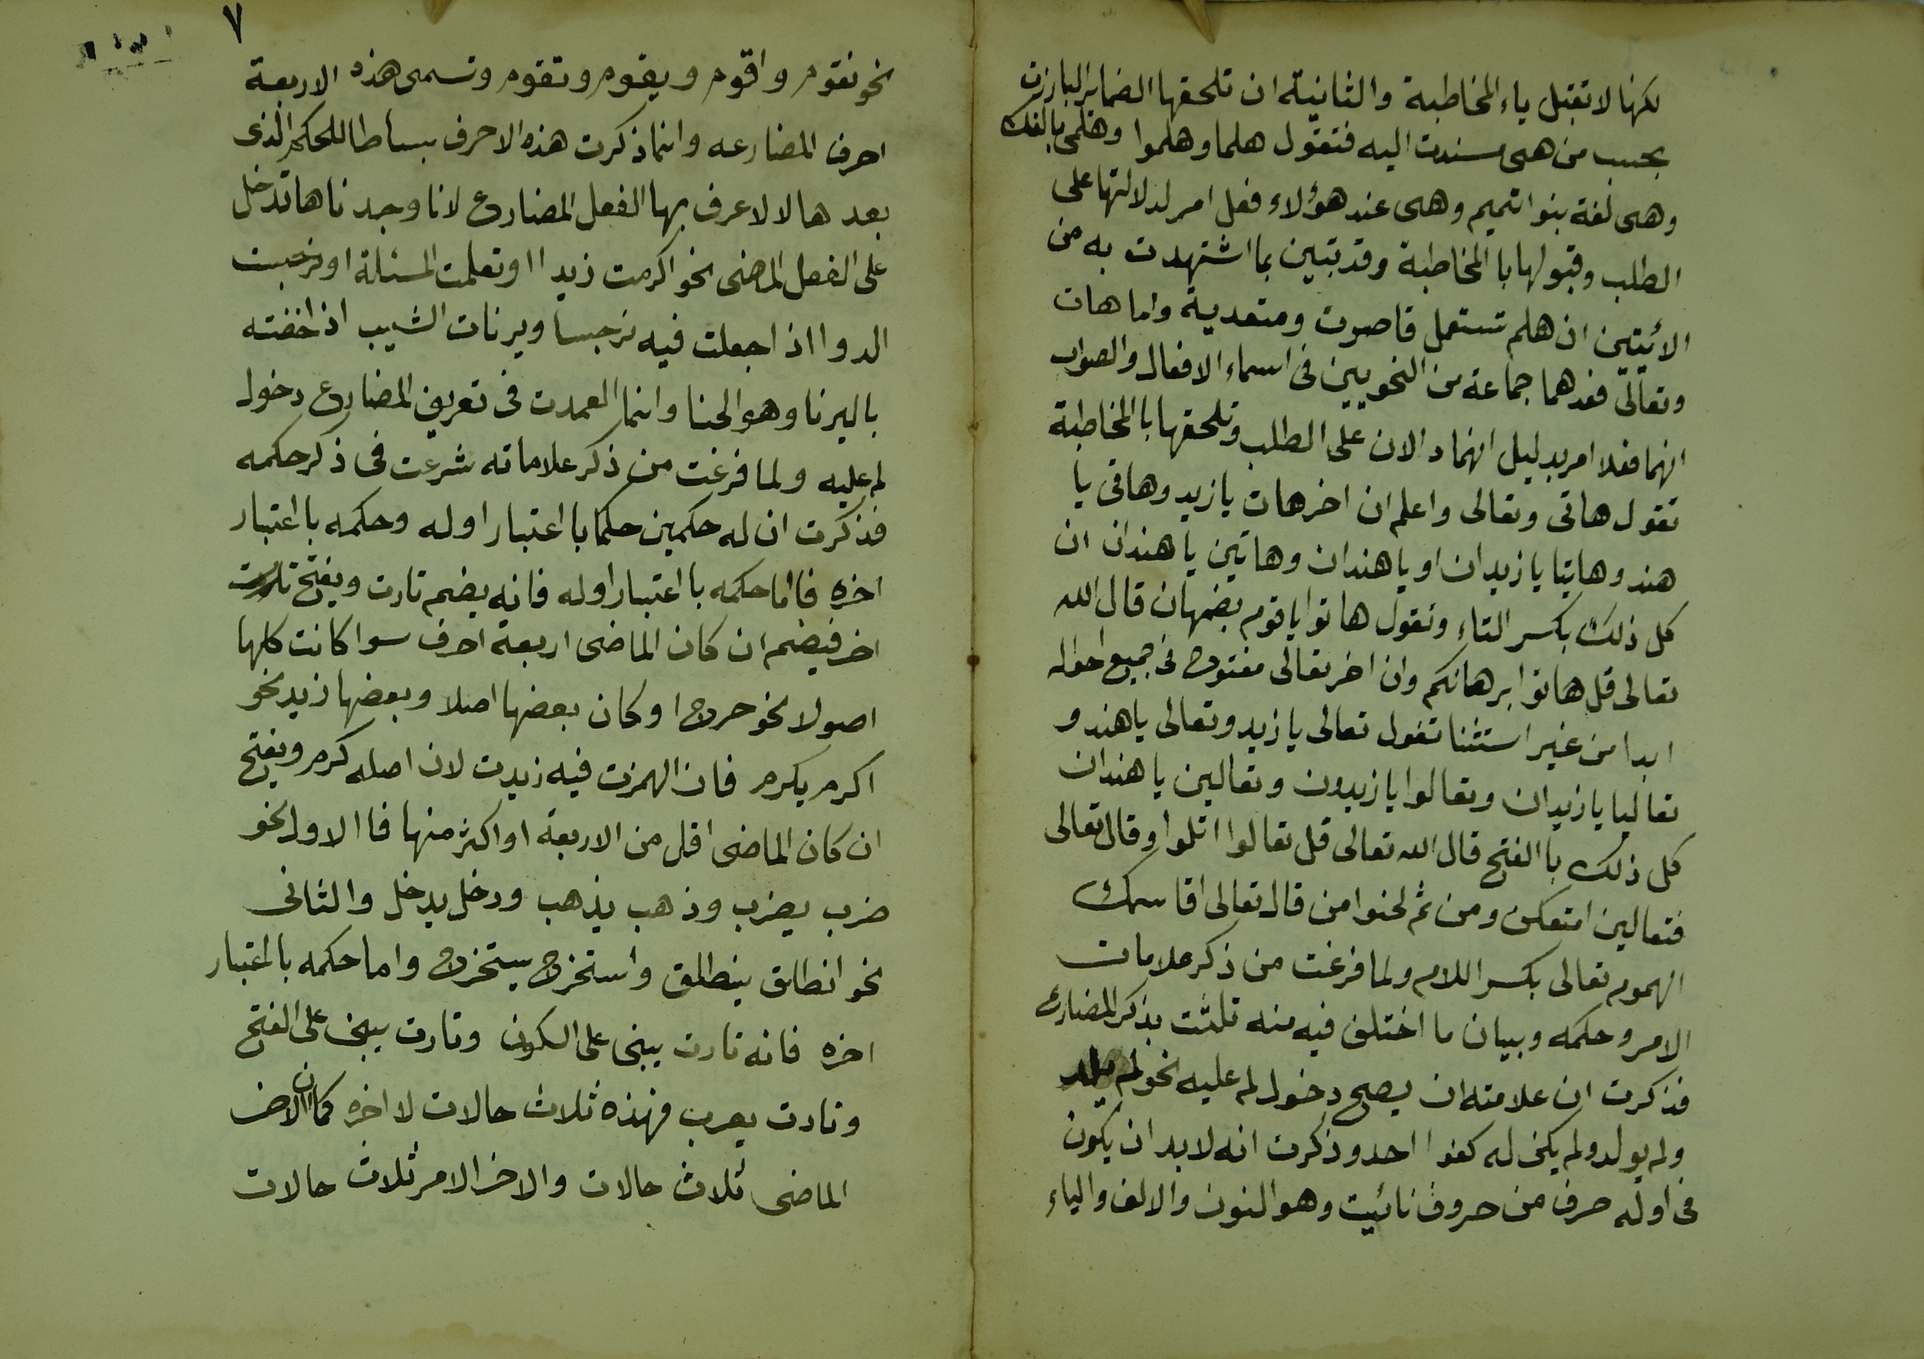 لكنها لا تقبل ياء المخاطبة والثانية ان تلحقها الضماير البارزت
بحسب من هى مسندت اليه فتقول هلما وهلموا وهلمى بالفك
وهى لغة بنوا تميم وهى عند هؤلاء فعل امر لدلالتها على
الطلب وقبولها با المخاطبة وقد تبين بما اشتهدت به من
الأيتين ان هلم تستعمل قاصرت ومتعدية واما هات
وتعالى فعدهما جماعة من النحويين فى اسماء الافعال والصواب
انهما فعلا امر بدليل انهما د الان على الطلب وتلحقها با المخاطبة
تقول هاتى وتعالى واعلم ان اخر هات يا زيد وهاتى يا
هند وهاتيا يا زيدان او يا هندان وهاتين يا هندان ان
كل ذلك بكسر التاء وتقول هاتوا يا قوم بضمها ن قال الله
تعالى قل هاتوا برهانكم وان اخر تعالى مفتوح فى جميع احواله
ابدا من غير استثنا تقول تعالى يا زيد وتعالى يا هند و
تعاليا يا زيدان وتعالوا يا زيدون وتعالين يا هندان
كل ذلك با الفتح قال الله تعالى قل تعالوا اتلوا وقال تعالى
فتعالين امتعكن ومن ثم لحنوا من قال تعالى اقاسمك
الهموم تعالى بكسر اللام ولما فرغت من ذكر علامات
الامر وحكمه وبيان ما اختلف فيه منه ثلثت بذكر المضارع
فذكرت ان علامته ان يصح دخول لم عليه نحو لم يلد
ولم يولد ولم يكن له كفوا احد وذكرت انه لابد ان يكون
فى اوله حرف من حروف نائيت وهو النون والالف والياء
٧
نحو نقوم واقوم ويقوم وتقوم وتسمى هذه الاربعة
احرف المضارعه وانما ذكرت هذه الاحرف بساطا للحكم الذى
بعدها لا لاعرف بها الفعل المضارع لانا وجدناها تدخل
على الفعل الماضى نحو اكرمت زيدا او تعلمت المسئلة او نرجست
الدوا اذا جعلت فيه نرجسا ويرنات الشيب اذا خفته
باليرنا وهو الحنا وانما العمدت فى تعريف المضارع دخول
لم عليه ولما فرغت من ذكر علاماته شرعت فى ذكر حكمه
فذكرت ان له حكمين حكما با اعتبار اوله وحكمه با اعتبار
اخره فاما حكمه با اعتبار اوله فانه يضم تارت ويفتح تارت
اخر فيضم ان كان الماضى اربعة احرف سوا كانت كلها
اصولا نحو دحرج او كان بعضها اصلا وبعضها زيد نحو
اكرم يكرم فان الهمزت فيه زيدت لان اصله كرم ويفتح
ان كان الماضى اقل من الاربعة او اكثر منها فا الاول نحو
ضرب يضرب وذهب يذهب ودخل يدخل والثانى
نحو انطلق ينطلق واستخرج يستخرج واما حكمه با اعتبار
اخره فانه تارت يبنى على السكون وتارت يبنى على الفتح
وتارت يعرب فهذه ثلاث حالات لاخره كما ان الاخر
الماضى ثلاث حالات والاخر الامر ثلاث حالات